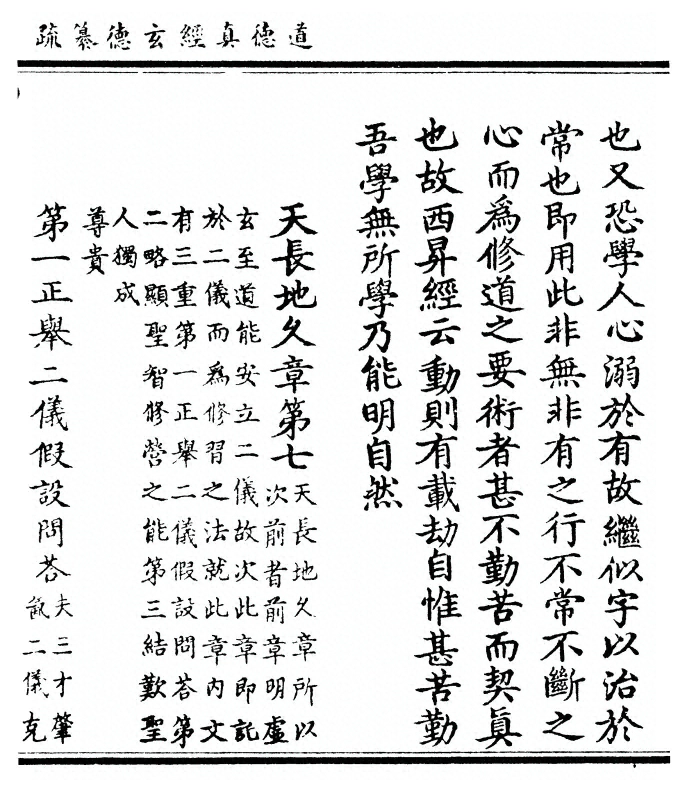 道德真經玄德纂疏
也又恐學人心溺於有故繼似字以治於
常也即用此非無非有之行不常不斷之
心而爲修道之要術者甚不勤苦而契眞
也故西昇經云動則有載劫自惟甚苦勤
吾學無所學乃能明自然
天長地久章第七
天長地久章所以
次前者前章明虛
玄至道能安立二儀故次此章即託
於二儀而爲修習之法就此章內文
有三重第一正舉二儀假設問荅第
二略顯聖智修營之能第三結歎聖
人獨成
尊貴
第一正舉二儀假設問荅
夫三才肇
氣二儀克